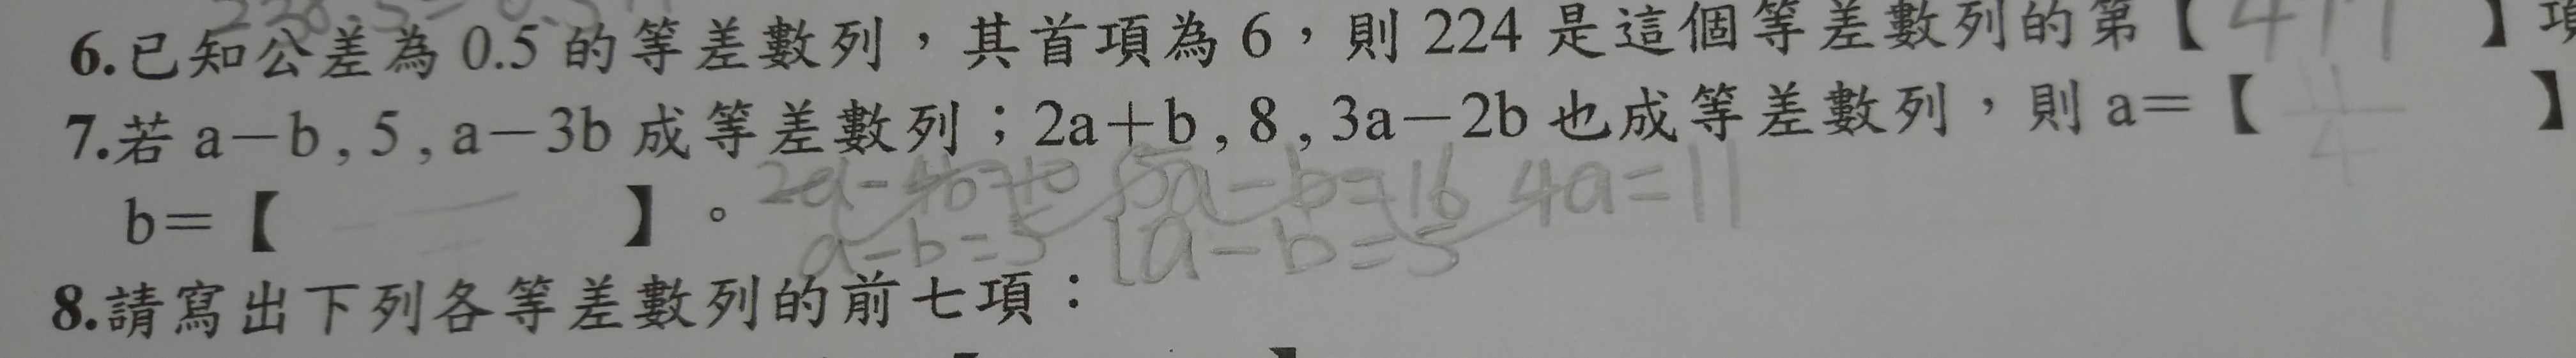 6.已知公差為 0.5 的等差數列，其首項為 6，則 224 是這個等差數列的第【 411 】項
7.若 a－b , 5 , a－3b 成等差數列；2a＋b , 8 , 3a－2b 也成等差數列，則 a＝【 11/4 】
2a-4b=10 5a-b=16 4a=11
b＝【 】。
a-b=5 a-b=5
8.請寫出下列各等差數列的前七項：